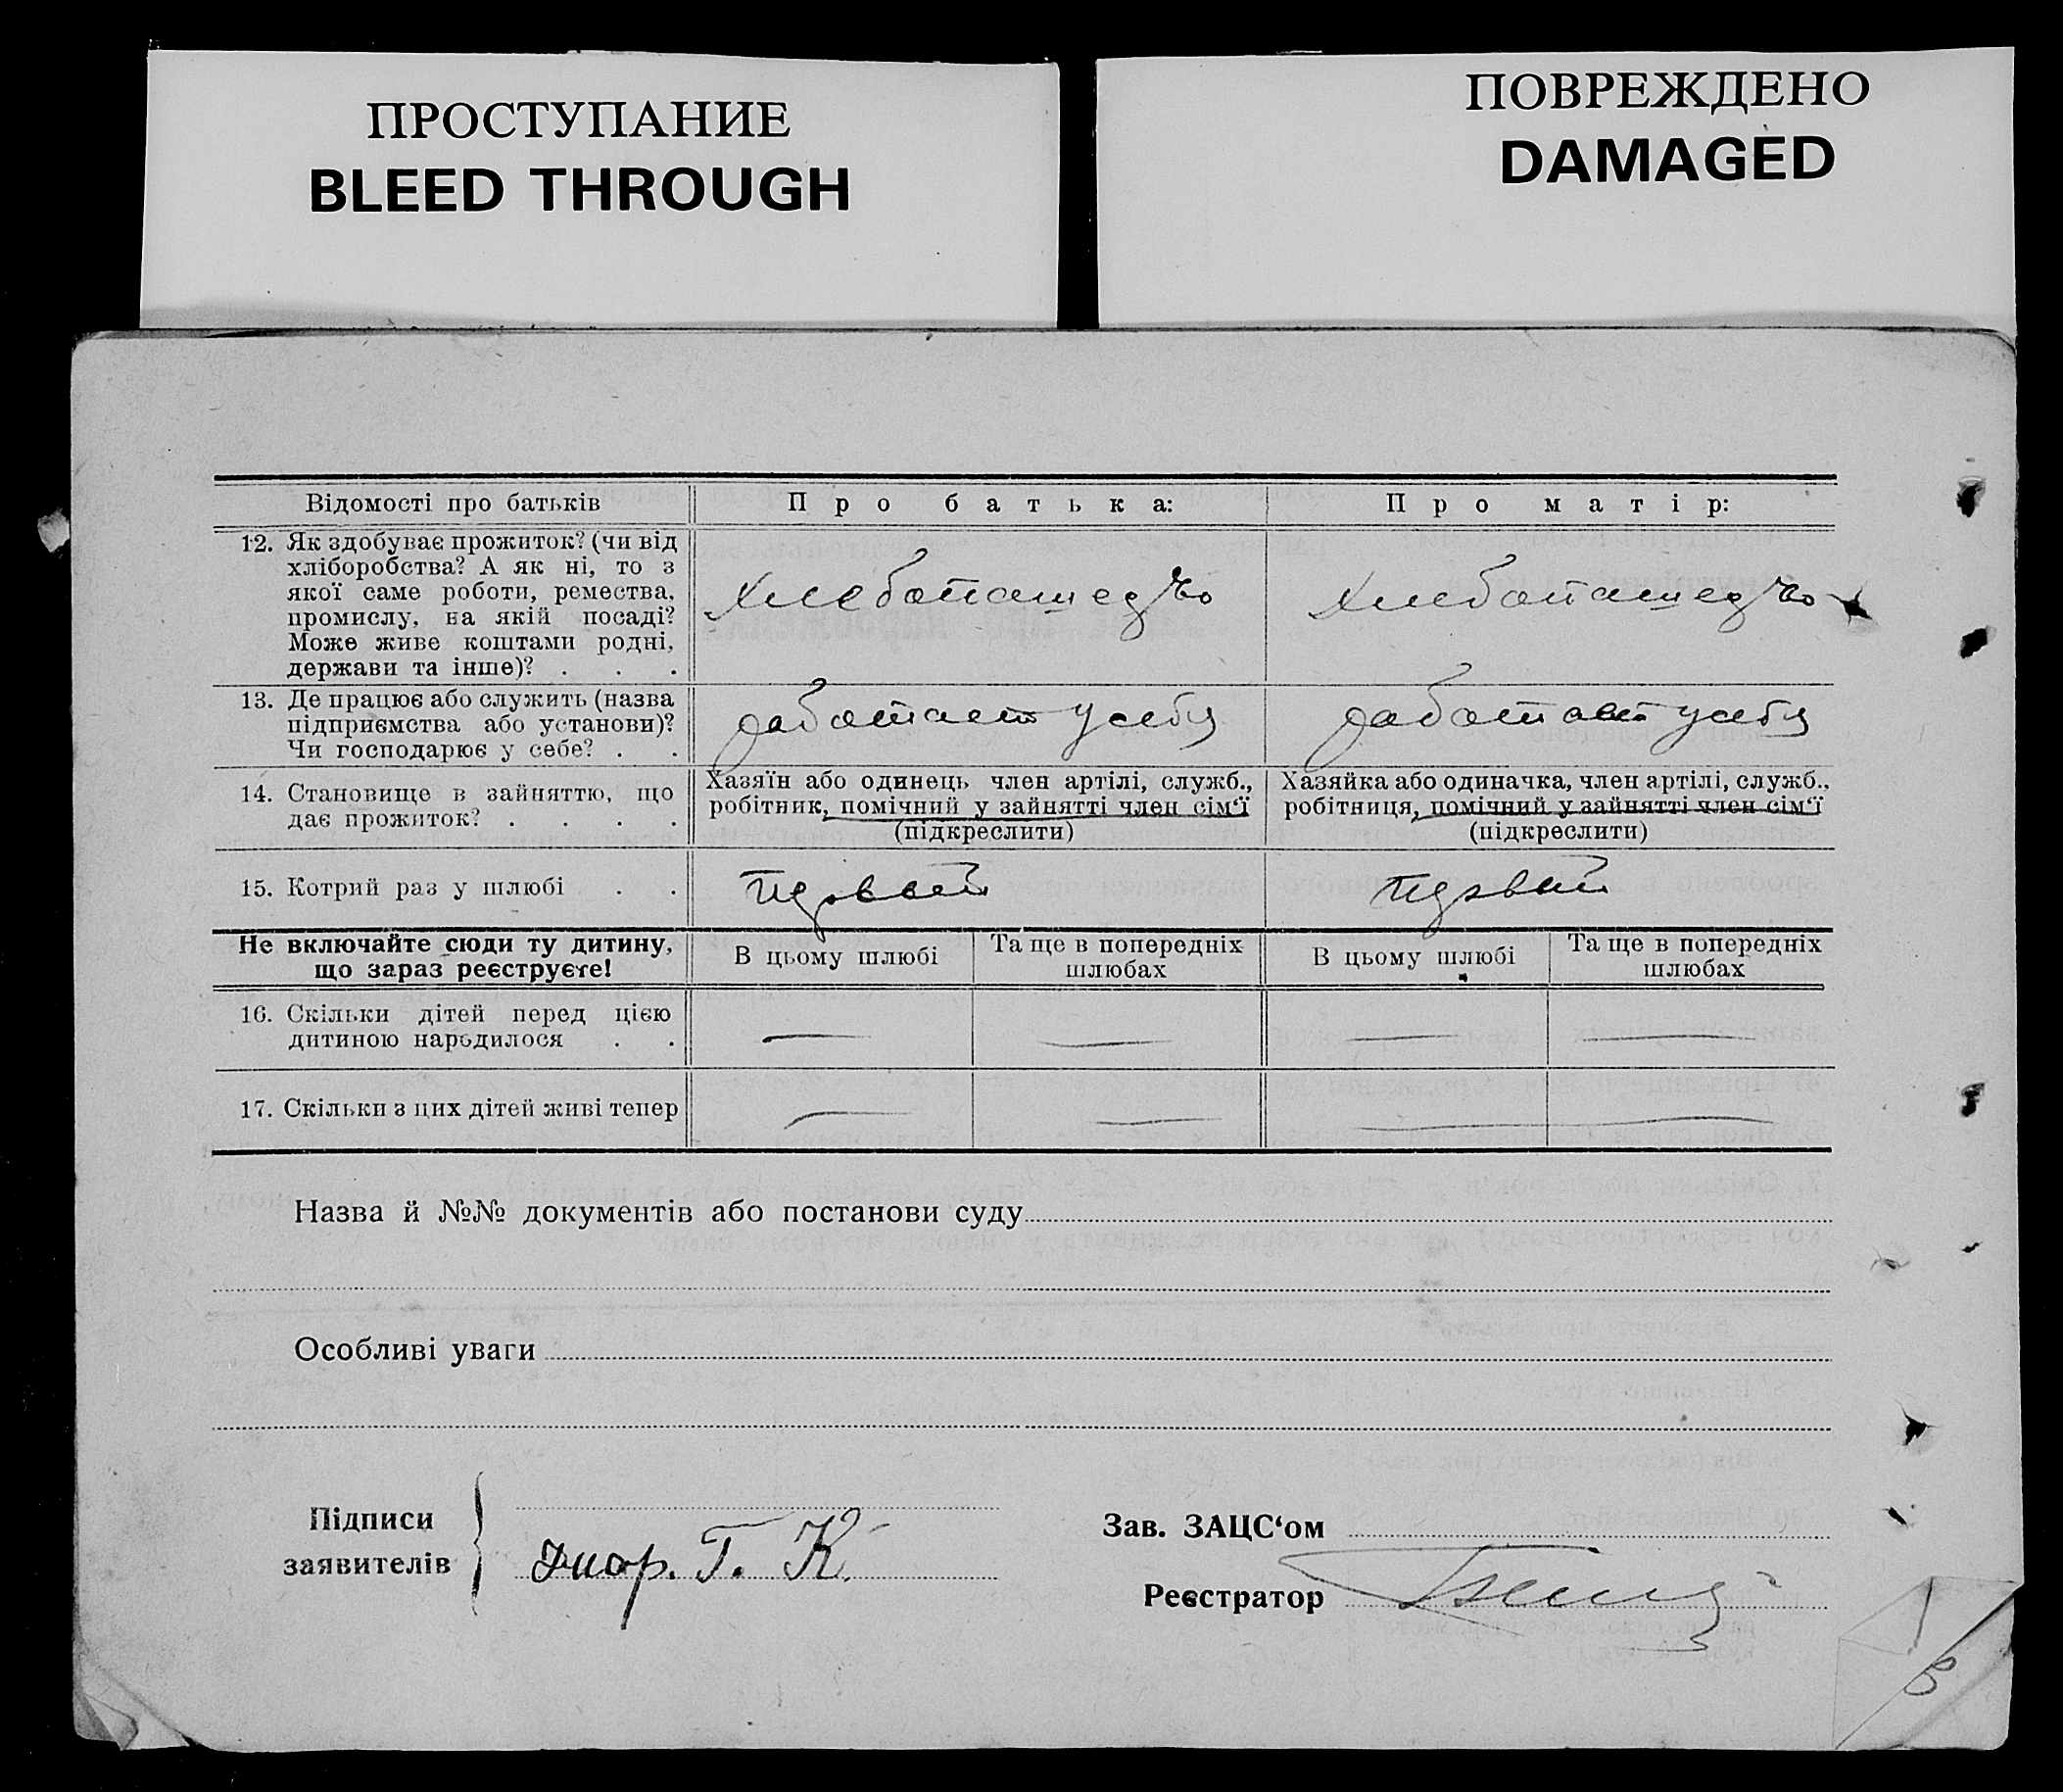 ПРОСТУПАНИЕ
BLEED THROUGH
ПОВРЕЖДЕНО
DAMAGED
Відомості про батьків
Про батька:
Про матір:
12. Як здобуває прожиток? (чи від
хліборобства? А як ні, то з
якої саме роботи, ремества,
промислу, на якій посаді?
Може живе коштами родні,
держави та інше)? . . .
Хлебопашество
Хлебопашество
13. Де працює або служить (назва
підприємства або установи)?
Чи господарює у себе? . .
работает у себя
работает у себя
14. Становище в зайняттю, що
дає прожиток? . . . .
Хазяїн або одинець член артілі, служб.,
робітник, помічний у зайнятті член сім'ї
(підкреслити)
Хазяйка або одиначка, член артілі, служб.,
робітниця, помічний у зайнятті член сім'ї
(підкреслити)
15. Котрий раз у шлюбі . .
первый
первый
Не включайте сюди ту дитину,
що зараз реєструєте!
В цьому шлюбі
Та ще в попередніх
шлюбах
В цьому шлюбі
Та ще в попередніх
шлюбах
16. Скільки дітей перед цією
дитиною народилося . .
— — — —
17. Скільки з цих дітей живі тепер
— — — —
Назва й №№ документів або постанови суду
Особливі уваги
Підписи
заявителів
Т. К.
Зав. ЗАЦС‘ом
Реєстратор
В